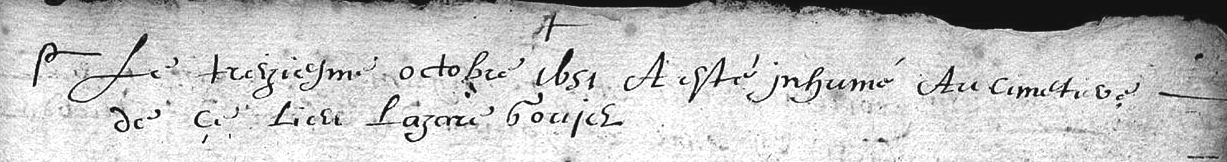 Le treiziesme octobre 1651 A esté jnhumé Au cimetiere
de ce lieu Lazare